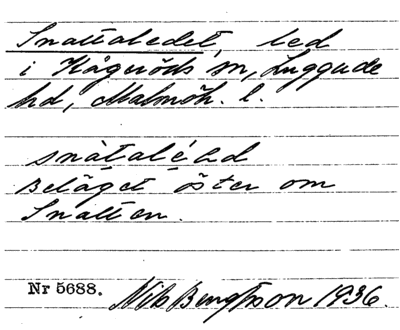 Snattaledet, led
i Kågeröds sn, Luggude
hd, Malmöh. l.
snàtaléad
Beläget öster om
Snatten.
Nr 5688. Nils Bengtsson 1936.